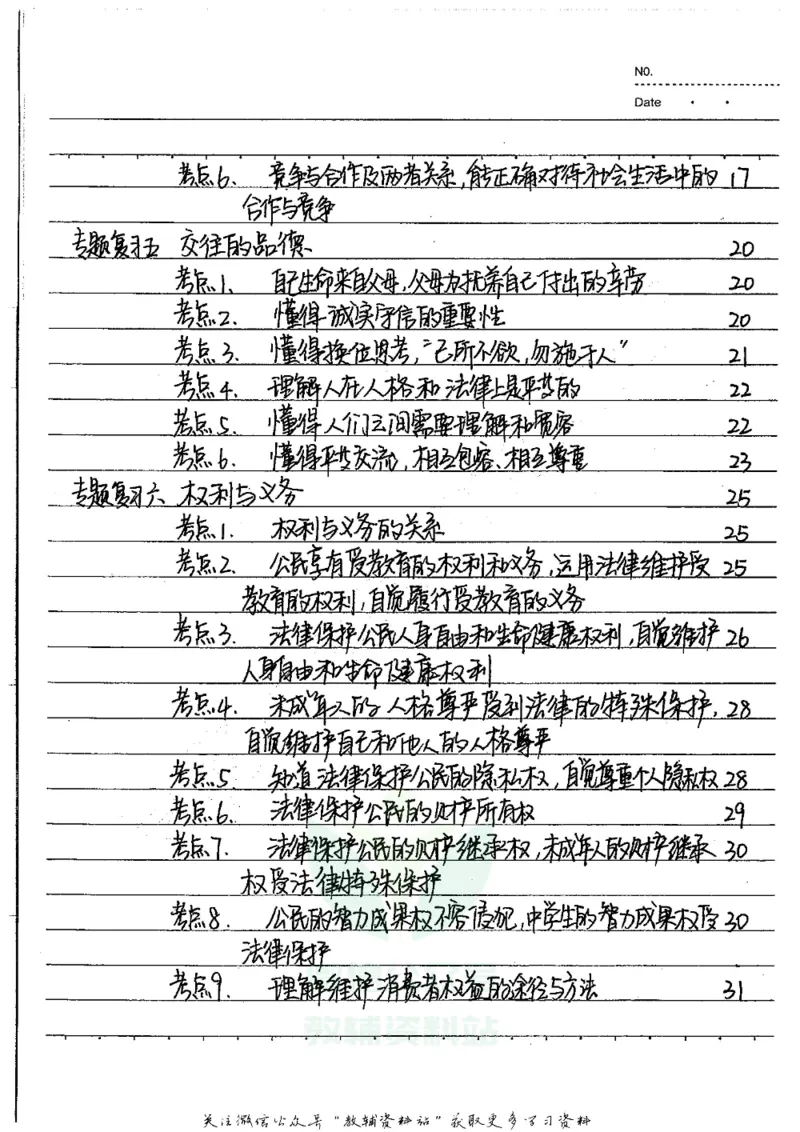 NO.
Date
考点6. 竞争与合作及两者关系,能正确对待社会生活中的 17
合作与竞争
专题复习五 交往的品德 20
考点1. 自己生命来自父母,父母为抚养自己付出的辛劳 20
考点2. 懂得诚实守信的重要性 20
考点3. 懂得换位思考,“己所不欲,勿施于人” 21
考点4. 理解人在人格和法律上是平等的 22
考点5. 懂得人们之间需要理解和宽容 22
考点6. 懂得平等交流,相互包容、相互尊重 23
专题复习六 权利与义务 25
考点1. 权利与义务的关系 25
考点2. 公民享有受教育的权利和义务,运用法律维护受 25
教育的权利,自觉履行受教育的义务
考点3. 法律保护公民人身自由和生命健康权利,自觉维护 26
人身自由和生命健康权利
考点4. 未成年人的人格尊严受到法律的特殊保护, 28
自觉维护自己和他人的人格尊严
考点5 知道法律保护公民的隐私权,自觉尊重个人隐私权 28
考点6. 法律保护公民的财产所有权 29
考点7. 法律保护公民的财产继承权,未成年人的财产继承 30
权受法律特殊保护
考点8. 公民的智力成果权不容侵犯,中学生的智力成果权受 30
法律保护
考点9. 理解维护消费者权益的途径与方法 31
教辅资料站
关注微信公众号“教辅资料站”获取更多学习资料